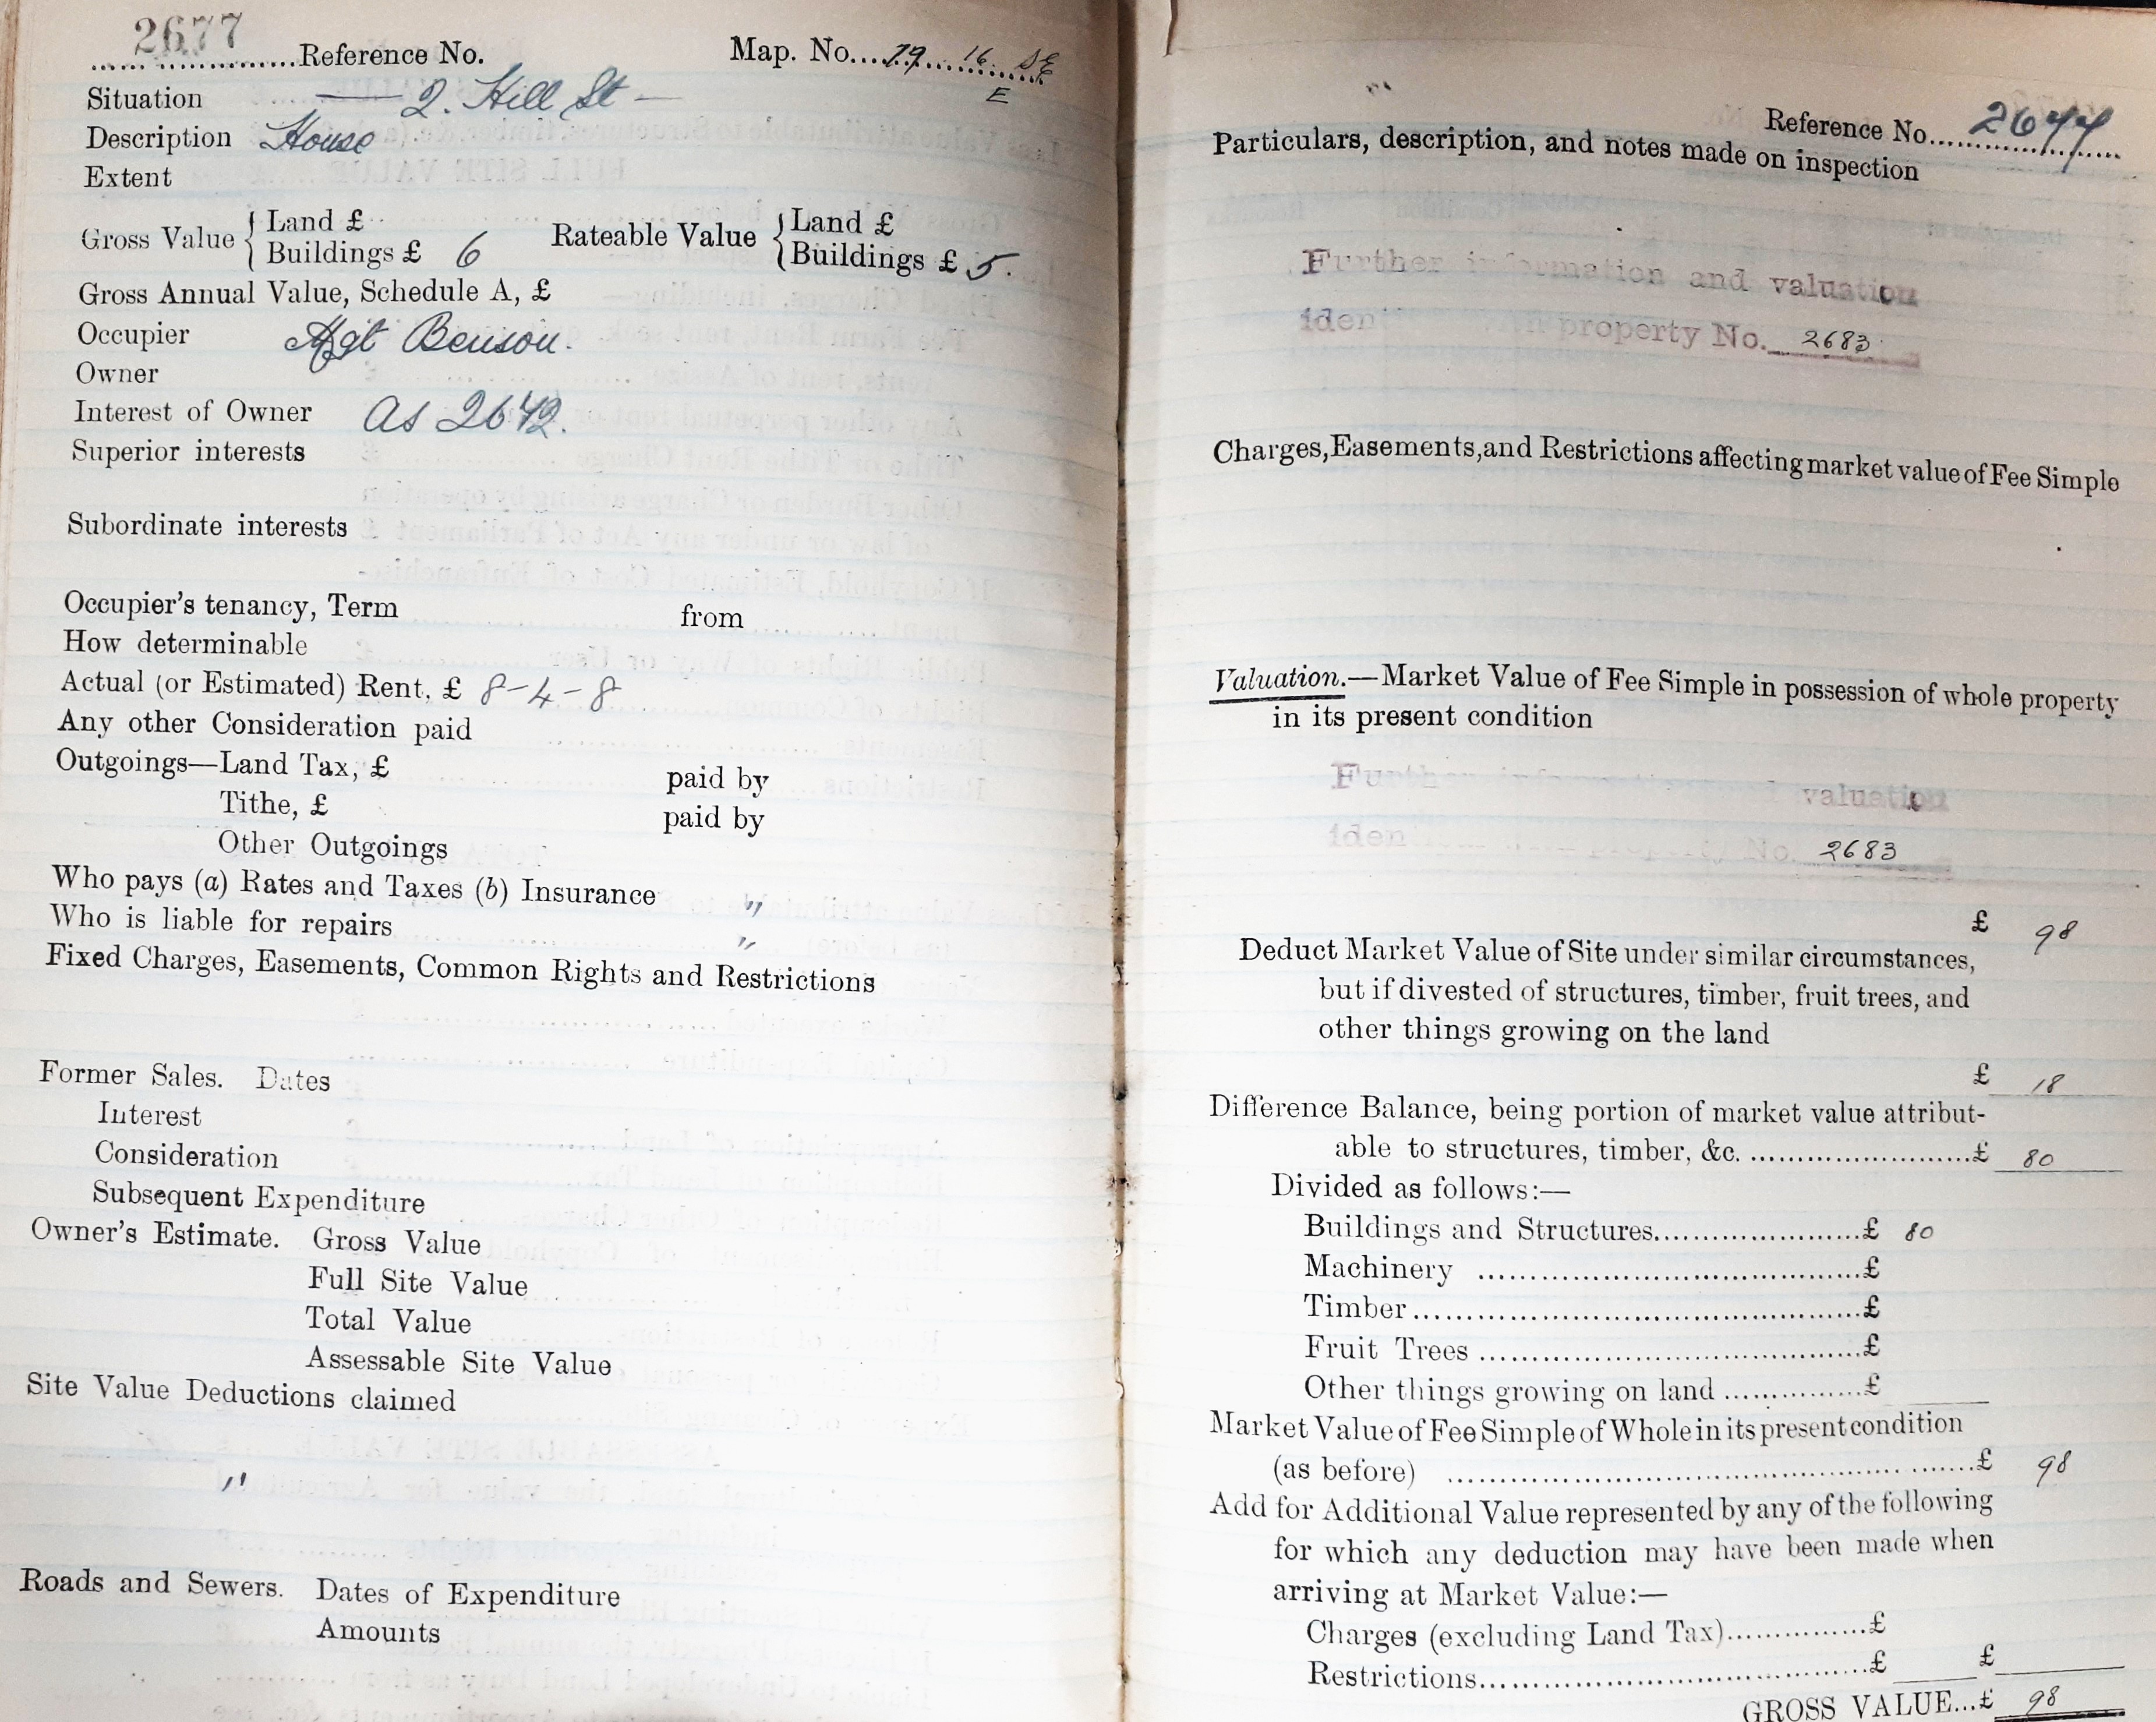 2677 Reference No. Map. No. 79 16 SE
E
Situation — 2. Hill St —
Description House
Extent
Gross Value { Land £
Buildings £ 6 Rateable Value { Land £
Buildings £ 5.
Gross Annual Value, Schedule A, £
Occupier Mgt Benson.
Owner
Interest of Owner As 2642.
Superior interests
Subordinate interests
Occupier's tenancy, Term from
How determinable
Actual (or Estimated) Rent, £ 8-4-8
Any other Consideration paid
Outgoings—Land Tax, £ paid by
Tithe, £ paid by
Other Outgoings
Who pays (a) Rates and Taxes (b) Insurance "
Who is liable for repairs "
Fixed Charges, Easements, Common Rights and Restrictions
Former Sales. Dates
Interest
Consideration
Subsequent Expenditure
Owner's Estimate. Gross Value
Full Site Value
Total Value
Assessable Site Value
Site Value Deductions claimed
"
Roads and Sewers. Dates of Expenditure
Amounts
"
Reference No. 2677
Particulars, description, and notes made on inspection
Further information and valuation
iden property No. 2683
Charges, Easements, and Restrictions affecting market value of Fee Simple
Valuation.—Market Value of Fee Simple in possession of whole property
in its present condition
Further valuation
iden No. 2683
£ 98
Deduct Market Value of Site under similar circumstances,
but if divested of structures, timber, fruit trees, and
other things growing on the land
£ 18
Difference Balance, being portion of market value attribut-
able to structures, timber, &c. £ 80
Divided as follows:—
Buildings and Structures £ 80
Machinery £
Timber £
Fruit Trees £
Other things growing on land £
Market Value of Fee Simple of Whole in its present condition
(as before) £ 98
Add for Additional Value represented by any of the following
for which any deduction may have been made when
arriving at Market Value:—
Charges (excluding Land Tax) £
Restrictions £ £
GROSS VALUE...£ 98